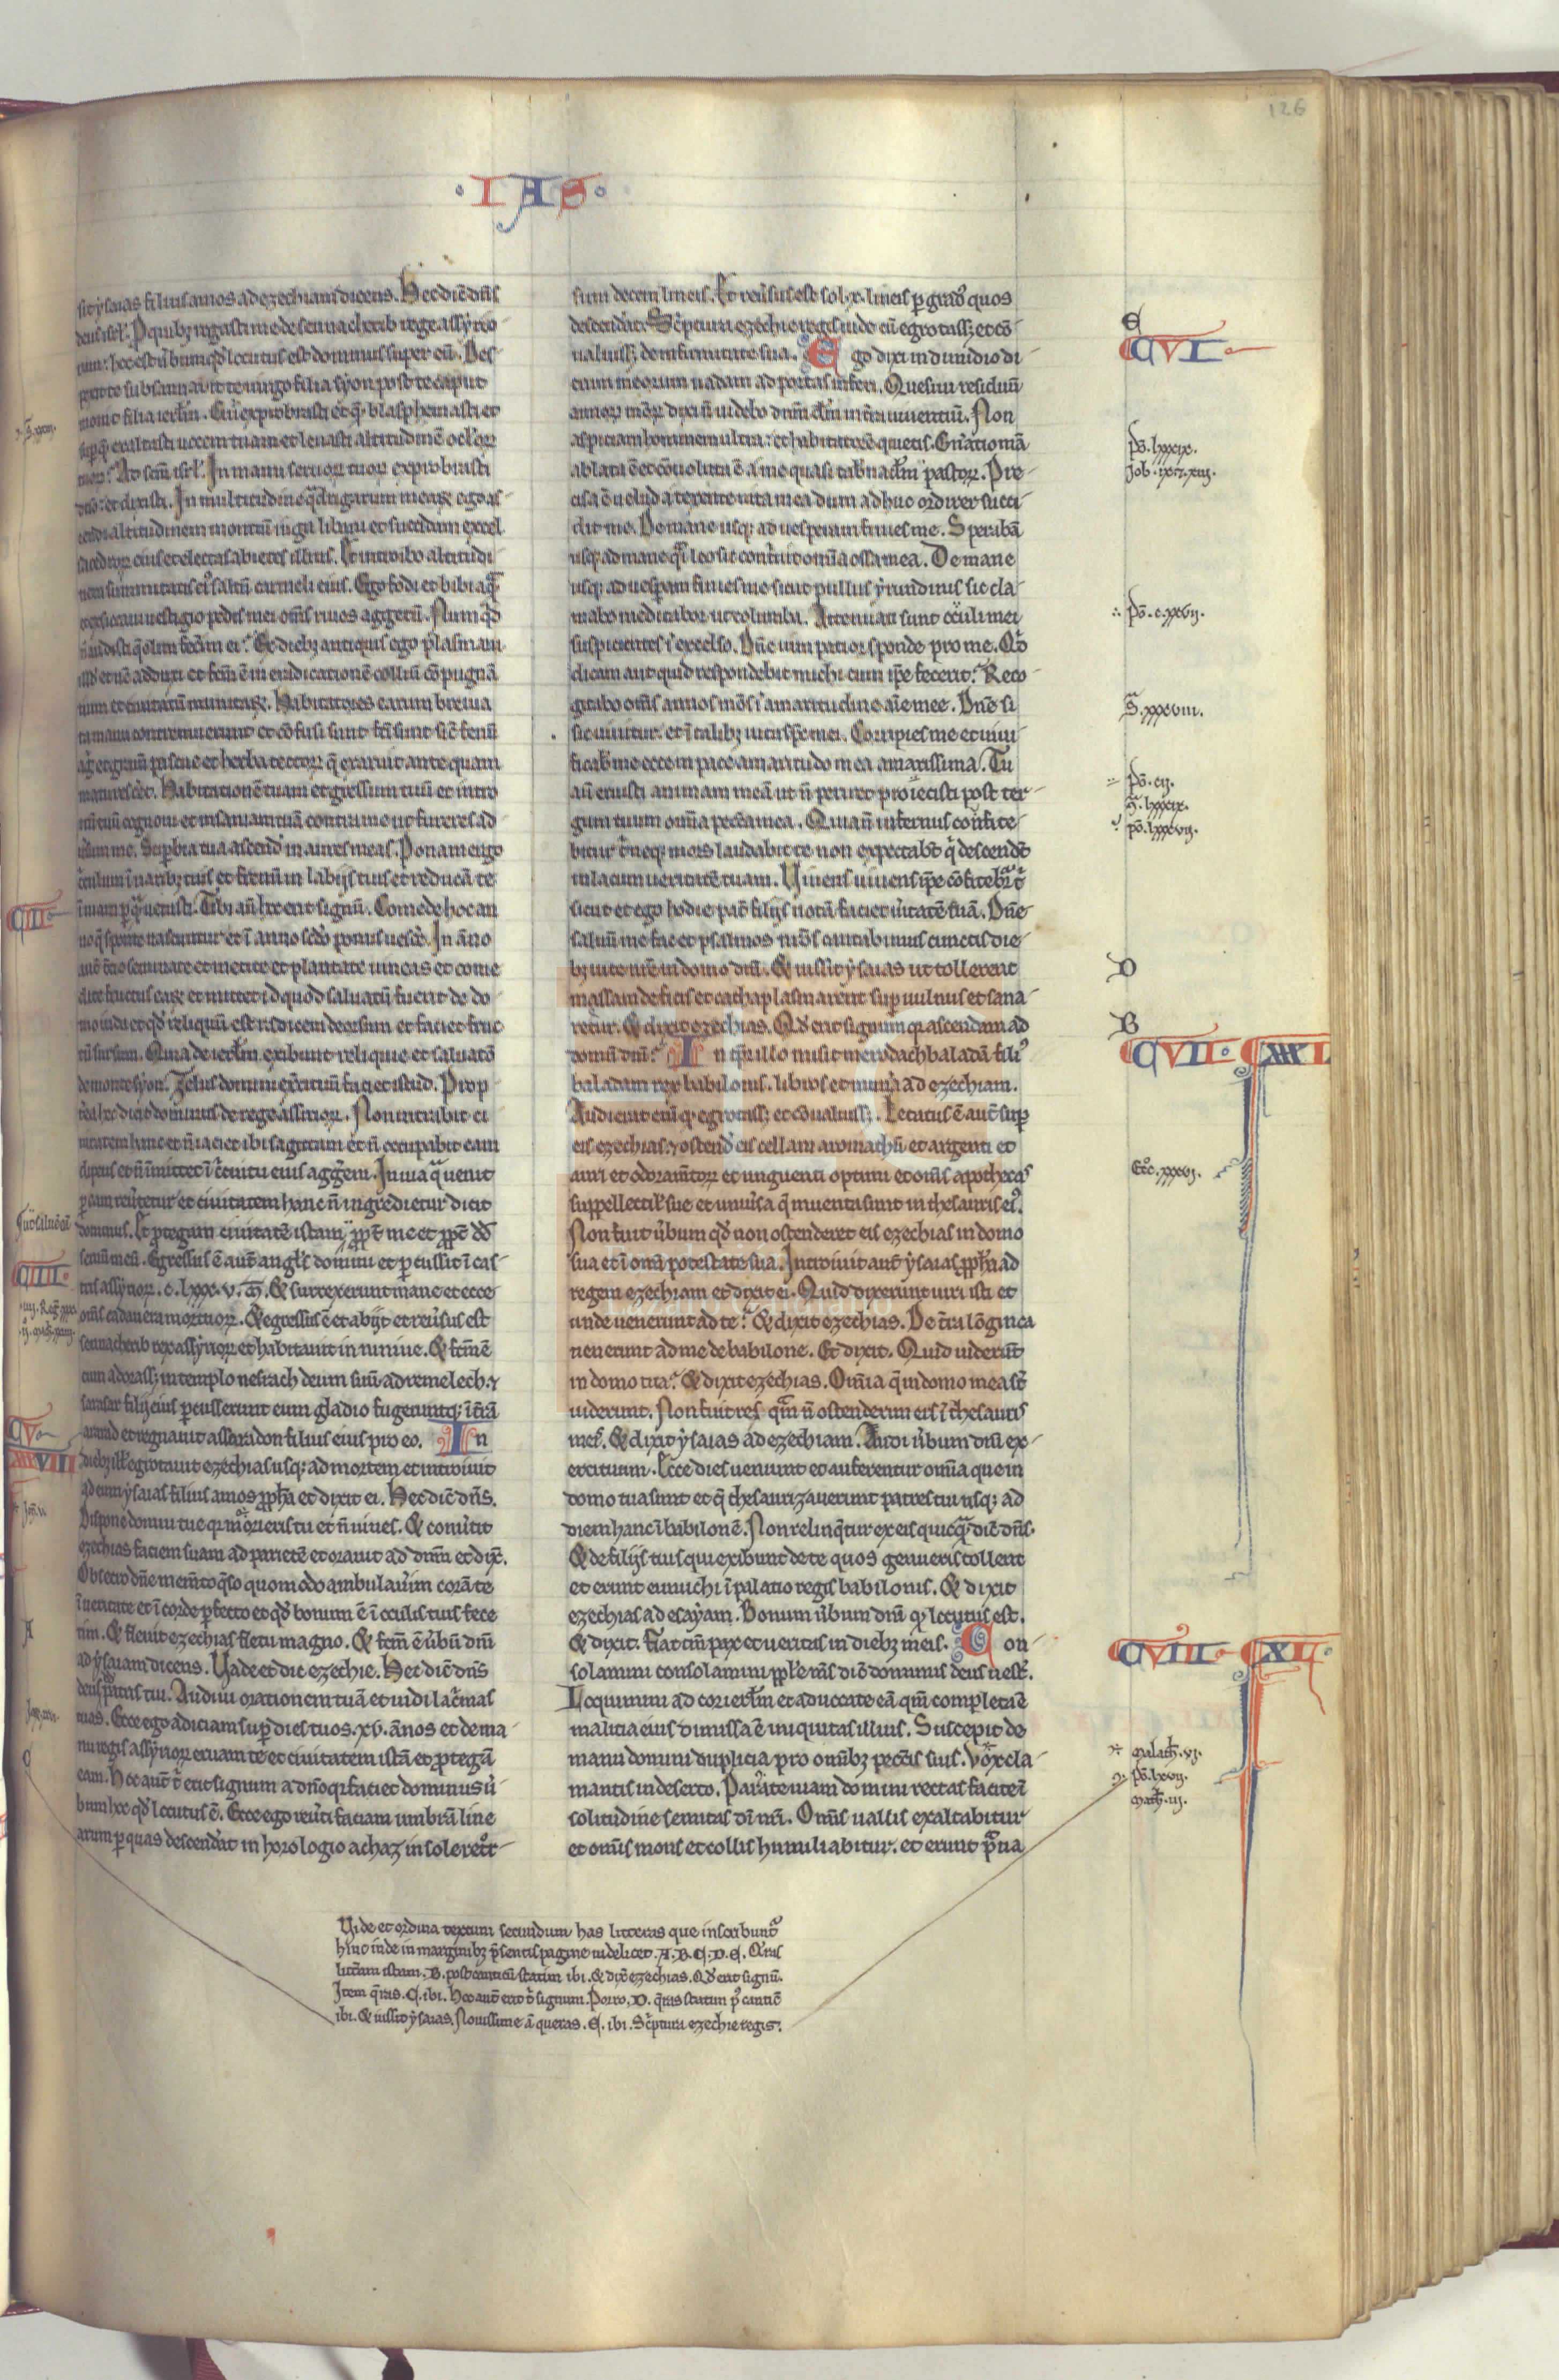 126
· I A S ·
sit ysaias filius amos ad ezechiam dicens. Hec dic̄ dn̄s
deus isrl̄. P quibꝫ rogasti me de sennacherib rege assyrio
rum: hoc est ūbum qd̄ locutus est dominus super eū. Des
pexit te subsannauit te uirgo filia syon post te caput
mouit filia ierl̄m. Cui exprobrasti et q̄ blasphemasti et
sup quē exaltasti uocem tuam et leuasti altitudinē oclōꝝ
tuoꝝ? Ad sc̄m isrl̄. In manu seruoꝝ tuoꝝ exprobrasti
dn̄o: et dixisti. In multitudine q̄drigarum meaꝝ ego as
cendi altitudinem montiū iuga libani et succidam excel
sa cedroꝝ eius et electas abietes illius. Et introibo altitudi
nem summitatis eiꝰ saltū carmeli eius. Ego fodi et bibi aq̄
et exsiccaui uestigio pedis mei om̄s riuos aggerū. Num qd̄
n̄ audisti q̄ olim fecim ei? Ex diebꝫ antiquis ego plasmaui
illd̄ et nc̄ adduxi et fcm̄ ē in eradicationē colliū cōpugnā
tium et ciuitatū munitaꝝ. Habitatores earum breuia
ta manu contremuerunt et cōfusi sunt fc̄i sunt sic̄ fenū
agri et gramē pascue et herba tectoꝝ q̄ exaruit ante quam
maturesceret. Habitationē tuam et gressum tuū et intro
itū tuū cognoui et insaniam tuā contra me ut fureres ad
uersum me. Superbia tua ascend̄ in aures meas. Ponam ergo
circulum ī naribꝫ tuis et frenū in labijs tuis et reducā te
ī uiam p quā uenisti. Tibi aūt hoc erit signū. Comede hoc an
no q̄ sponte nascuntur et ī anno sc̄do pomis uescere. In āno
aut̄ tercio seminate et metite et plantate uineas et come
dite fructus eaꝝ et mittet id quod saluatū fuerit de do
mo iuda et qd̄ reliquū est radicem deorsum et faciet fruc
tū sursum. Quia de ierl̄m exibunt reliquie et saluatō
de monte syon. Zelus domini exercituū faciet istud. Prop
terea hec dicit dominus de rege assirioꝝ. Non intrabit ci
uitatem hanc et n̄ iaciet ibi sagittam et n̄ occupabit eam
clipeus et n̄ mittet ī circuitu eius aggerem. In uia q̄ uenit
p eam reuertetur et ciuitatem hanc n̄ ingredietur dicit
dominus. Et protegam ciuitatē istam ppt̄ me et ppt̄ dd̄
seruū meū. Egressus ē aut̄ angl̄s domini et pcussit ī cas
tris assyrioꝝ .c.lxxx.v. m̄. Et surrexerunt mane et ecce
om̄s cadauera mortuoꝝ. Et egressus ē et abijt et reūsus est
sennacherib rex assyrioꝝ et habitauit in niniue. Et fcm̄ ē
cum adorassꝫ in templo nesrach deum suū adremelech ⁊
sarasar filij eius pcusserunt eum gladio fugeruntqꝫ ī t̄rā
ararad et regnauit assaradon filius eius pro eo. In
diebꝫ ill̄ egrotauit ezechias usqꝫ ad mortem et introiuit
ad eum ysaias filius amos pph̄a et dixit ei. Hec dic̄ dn̄s.
Dispone domui tue qr morieris tu et n̄ uiues. Et conūtit
ezechias faciem suam ad parietē et orauit ad dn̄m et dix̄.
Obsecro dn̄e memto q̄so quomodo ambulauerim corā te
ī ueritate et ī corde pfecto et qd̄ bonum ē ī oculis tuis fece
rim. Et fleuit ezechias fletu magno. Et fcm̄ ē ūbū dn̄i
ad ysaiam dicens. Uade et dic ezechie. Hec dic̄ dn̄s
deus dd̄ patris tui. Audiui orationem tuā et uidi lac̄mas
tuas. Ecce ego adiciam sup dies tuos .xv. ānos et de ma
nu regis assyrioꝝ eruam te et ciuitatem istā et ptegā
eam. Hoc aut̄ t̄ erit signum a dn̄o qr faciet dominus ū
bum hoc qd̄ locutus ē. Ecce ego reūti faciam umbrā line
arum p quas descenderat in horologio achaz in sole retror
sum decem lineis. Et reūsus est sol .x. lineis p gradꝰ quos
descenderat. Sc̄ptura ezechie regis iude cū egrotassꝫ et cō
ualuissꝫ de infirmitate sua. Ego dixi in dimidio di
erum meorum uadam ad portas inferi. Quesiui residuū
annoꝝ meoꝝ dixi n̄ uidebo dn̄m dm̄ in t̄ra uiuentiū. Non
aspiciam hominem ultra: et habitatorē quietis. Gn̄atio mā
ablata ē et cōuoluta ē a me quasi tabn̄aclm̄ pastoꝝ. Pre
cisa ē uelud a texente uita mea dum adhuc ordirer succi
dit me. De mane usqꝫ ad uesperam finies me. Sperabā
usqꝫ ad mane q̄si leo sic contriuit om̄a ossa mea. De mane
usqꝫ ad uesperam finies me sicut pullus yrundinis sic cla
mabo meditabor ut columba. Attenuati sunt oculi mei
suspicientes ī excelso. Dn̄e uim patior sponde pro me. Qd̄
dicam aut quid respondebit michi cum ip̄e fecerit? Reco
gitabo om̄s annos mōs ī amaritudine aīe mee. Dn̄e si
sic uiuitur et ī talibꝫ uita sp̄c mei. Corripies me et uiui
ficab̄ me ecce in pace amaritudo mea amarissima. Tu
aūt eruisti animam meā ut n̄ periret proiecisti post ter
gum tuum om̄a peccata mea. Quia n̄ infernus confite
bitur t̄ neqꝫ mors laudabit te non expectabt̄ q̄ descendt̄
in lacum ueritatē tuam. Uiuens uiuens ip̄e cōfitebr̄ t̄
sicut et ego hodie pat̄ filijs notā faciet ūitatē tuā. Dn̄e
saluū me fac et psalmos nr̄os cantabimus cunctis die
bꝫ uite nr̄e in domo dn̄i. Et iussit ysaias ut tollerent
massam de ficis et cathaplasmarent sup uulnus et sana
retur. Et dixit ezechias. Qd̄ erit signum qr ascendam ad
domū dn̄i? In tp̄r illo misit merodachbaladā filiꝰ
baladam rex babilonis. libros et mun̄a ad ezechiam.
Audierat enī qꝫ egrotassꝫ et cōualuissꝫ. Letatus ē aut̄ sup
eis ezechias ⁊ ostend̄ eis cellam aromatū et argenti et
auri et odoramtoꝝ et unguenti optimi et om̄s apothecas
suppellectil̄ sue et uniūsa q̄ inuenta sunt in thesauris eiꝰ.
Non fuit ūbum qd̄ non ostenderet eis ezechias in domo
sua et ī om̄i potestate sua. Introiuit aut̄ ysaias pph̄a ad
regem ezechiam et dixit ei. Quid dixerunt uiri isti et
unde uenerunt ad te? Et dixit ezechias. De t̄ra lōginca
uenerunt ad me de babilone. Et dixit. Quid uiderūt
in domo tua? Et dixit ezechias. Om̄ia q̄ in domo mea st̄
uiderunt. Non fuit res qm̄ n̄ ostenderim eis ī thesauris
meis. Et dixit ysaias ad ezechiam. Audi ūbum dn̄i ex
ercituum. Ecce dies ueniunt et auferentur om̄ia que in
domo tua sunt et q̄ thesaurizauerunt patres tui usqꝫ ad
diem hanc ī babilonē. Non relinq̄tur ex eis quicq̄ dic̄ dn̄s.
Et de filijs tuis qui exibunt de te quos genueris tollent
et erunt eunuchi ī palatio regis babilonis. Et dixit
ezechias ad esayam. Bonum ūbum dn̄i qꝫ locutus est.
Et dixit. Fiat tm̄ pax et ueritas in diebꝫ meis. Con
solamini consolamini pple m̄s dic̄ dominus deus uest̄.
Loquimini ad cor ierl̄m et aduocate eā qm̄ completa ē
malitia eius dimissa ē iniquitas illius. Suscepit de
manu domini duplicia pro om̄ibꝫ pecc̄is suis. Vox cla
mantis in deserto. Parate uiam domini rectas facite ī
solitudine semitas dī nr̄i. Om̄is uallis exaltabitur
et om̄is mons et collis humiliabitur. et erunt praua
Uide et ordina textum secundum has litteras que inscribunt̄
hinc inde in marginibꝫ p̄sentis pagine uidelicet. A. B. C. D. E. Q̄ras
litt̄am istam .B. post canticū statim ibi. Et dix̄ ezechias. Qd̄ erit signū.
Item q̄ras .C. ibi. Hoc aut̄ erit t̄ signum. Porro .D. q̄ras statim pꝰ canticū
ibi. Et iussit ysaias. Nouissime ā queras .E. ibi. Sc̄ptura ezechie regis.
CIII
CIIII.
CV
XXXVIII
A
C
E
CVI
pō. lxxxix.
Job .ix.
pō .c.xxvij.
S̄. xxxviii.
pō. cij.
pō. lxxxvij.
D
B
CVII. XXXIX
Ecc̄. xxxvij.
CVIII XL
malach̄. iij.
pō. lxvij.
math̄. iij.